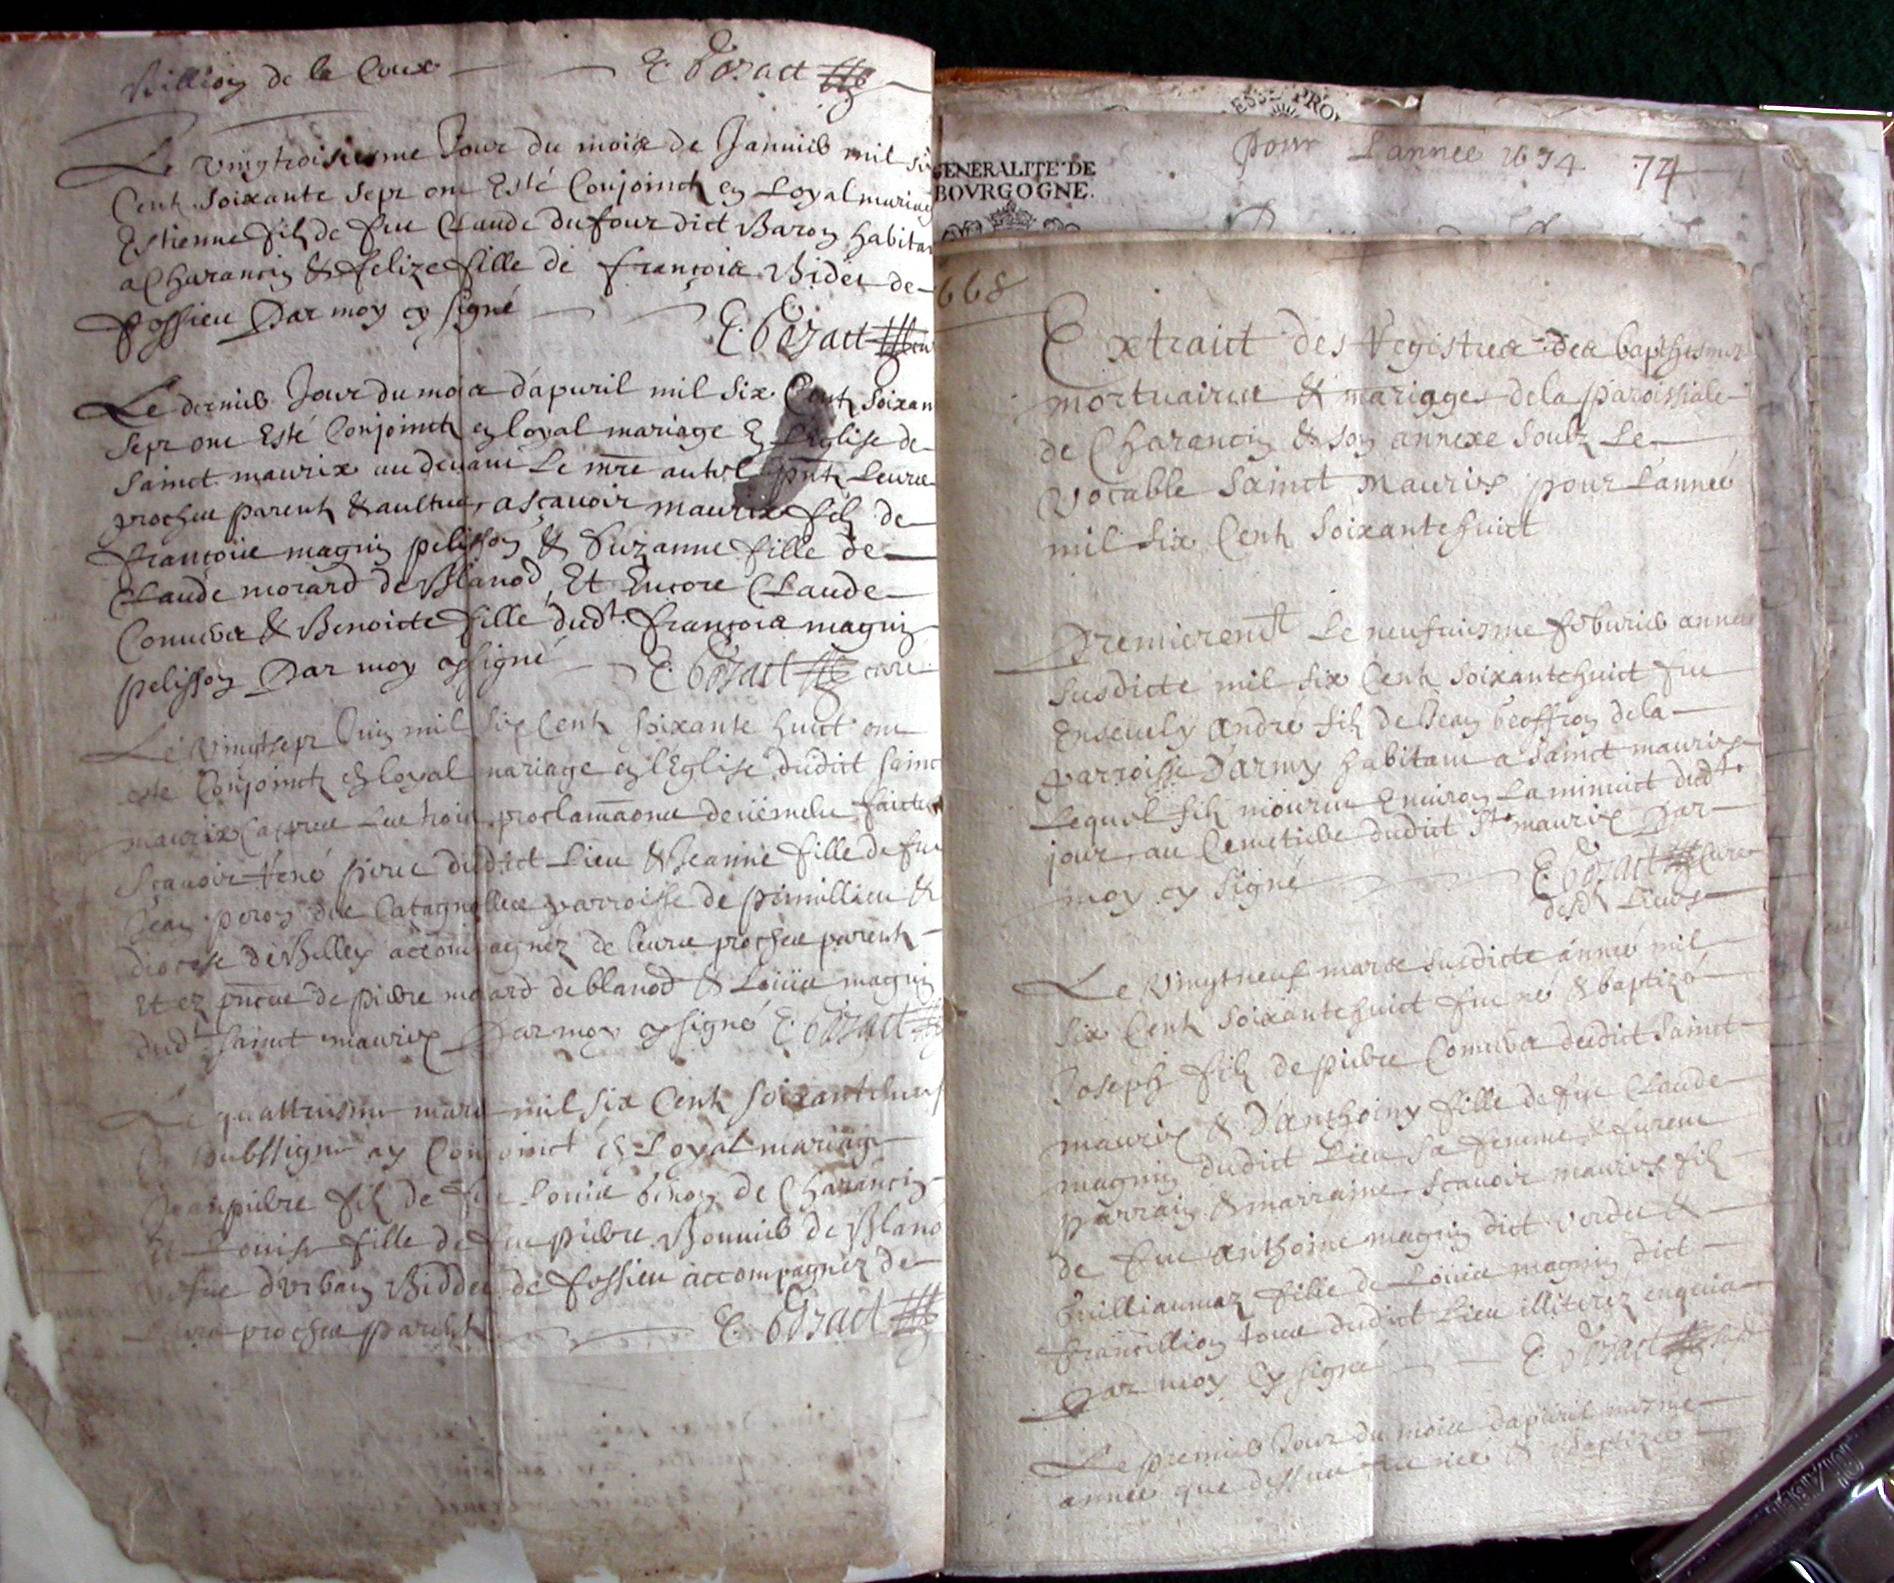 Billion de la Coux E. Bozact
Le vingtroisiesme Jour du mois de Janvier mil six
Cent soixante sept ont Esté Conjoinct en Loyal mariage
Estienne filz de feu Claude dufour dict Baron habitan
a Charancin & felize fille de françois Bidet de
fossieu Par moy cy signé
E. Bozact
Le dernier Jour du mois d'apuril mil six Cent soixan
sept ont Esté Conjoinct en loyal mariage En L'Eglise de
Sainct maurix au devant Le mre autel pnt Leurs
proches parents & aultres, ascavoir maurix filz de
françois magnin pelisson & Suzanne fille de
Claude morard de Blanod, Et Encore Claude
& Benoicte fille dudt. françois magnin
pelisson Par moy cy signé E. Bozact cure
Le vingtsept Juin mil six Cent soixante huict ont
esté Conjoinct en loyal mariage en l'Eglise dudict sainct
maurix apres Les trois proclamaons deüement faictes
scavoir René dudict Lieu & Jeanne fille de feu
Jean peron parroisse de &
diocese de Belley accompagnez de leurs proches parents
Et ez de pierre morard de blanod & Loüis magnin
dudt sainct maurix Par moy cy signé E. Bozact
Le quattriesme mars mil six Cent soixanteneuf
soubssigné ay Conjoinct En Loyal mariage
Jeanpierre filz de feu Louis de Charancin
Et Louise fille de feu pierre Bonnier de Blano
vefve d'Urbain Biddet de fossieu accompagnez de
Leurs proches parents E. Bozact
GENERALITE DE
BOVRGOGNE.
Pour Lannee 1674 74
668
Extraict des Registres des baptesmes
mortuaires & mariages de la paroissiale
de Charancin & son annexe soubz Le
vocable Sainct Maurix pour L'année
mil six Cent soixantehuict
Premierement Le neufuiesme feburier annee
susdicte mil six Cent soixantehuict fut
Enseuely André filz de Jean Geoffroy de la
parroisse D'army habitant a sainct maurix
Lequel filz mourut Environ La minuict dudt
jour, au Cemetiere dudict st. maurix Par
moy cy signé E. Bozact Cure
desdt Lieux
Le vingtneuf mars susdicte année mil
six Cent soixantehuict fut né & baptizé
Joseph filz de pierre dudict sainct
maurix & D'anthoiny fille de feu Claude
magnin dudict Lieu sa femme & furent
parrain & marraine scavoir maurix filz
de feu anthoine magnin dict verdet &
Guilliaumaz fille de Loüis magnin dict
francillion tous dudict Lieu illiterez enquis
Par moy Cy signé E. Bozact
Le premier Jour du mois dapuril mesme
année que dessus née & Baptizée